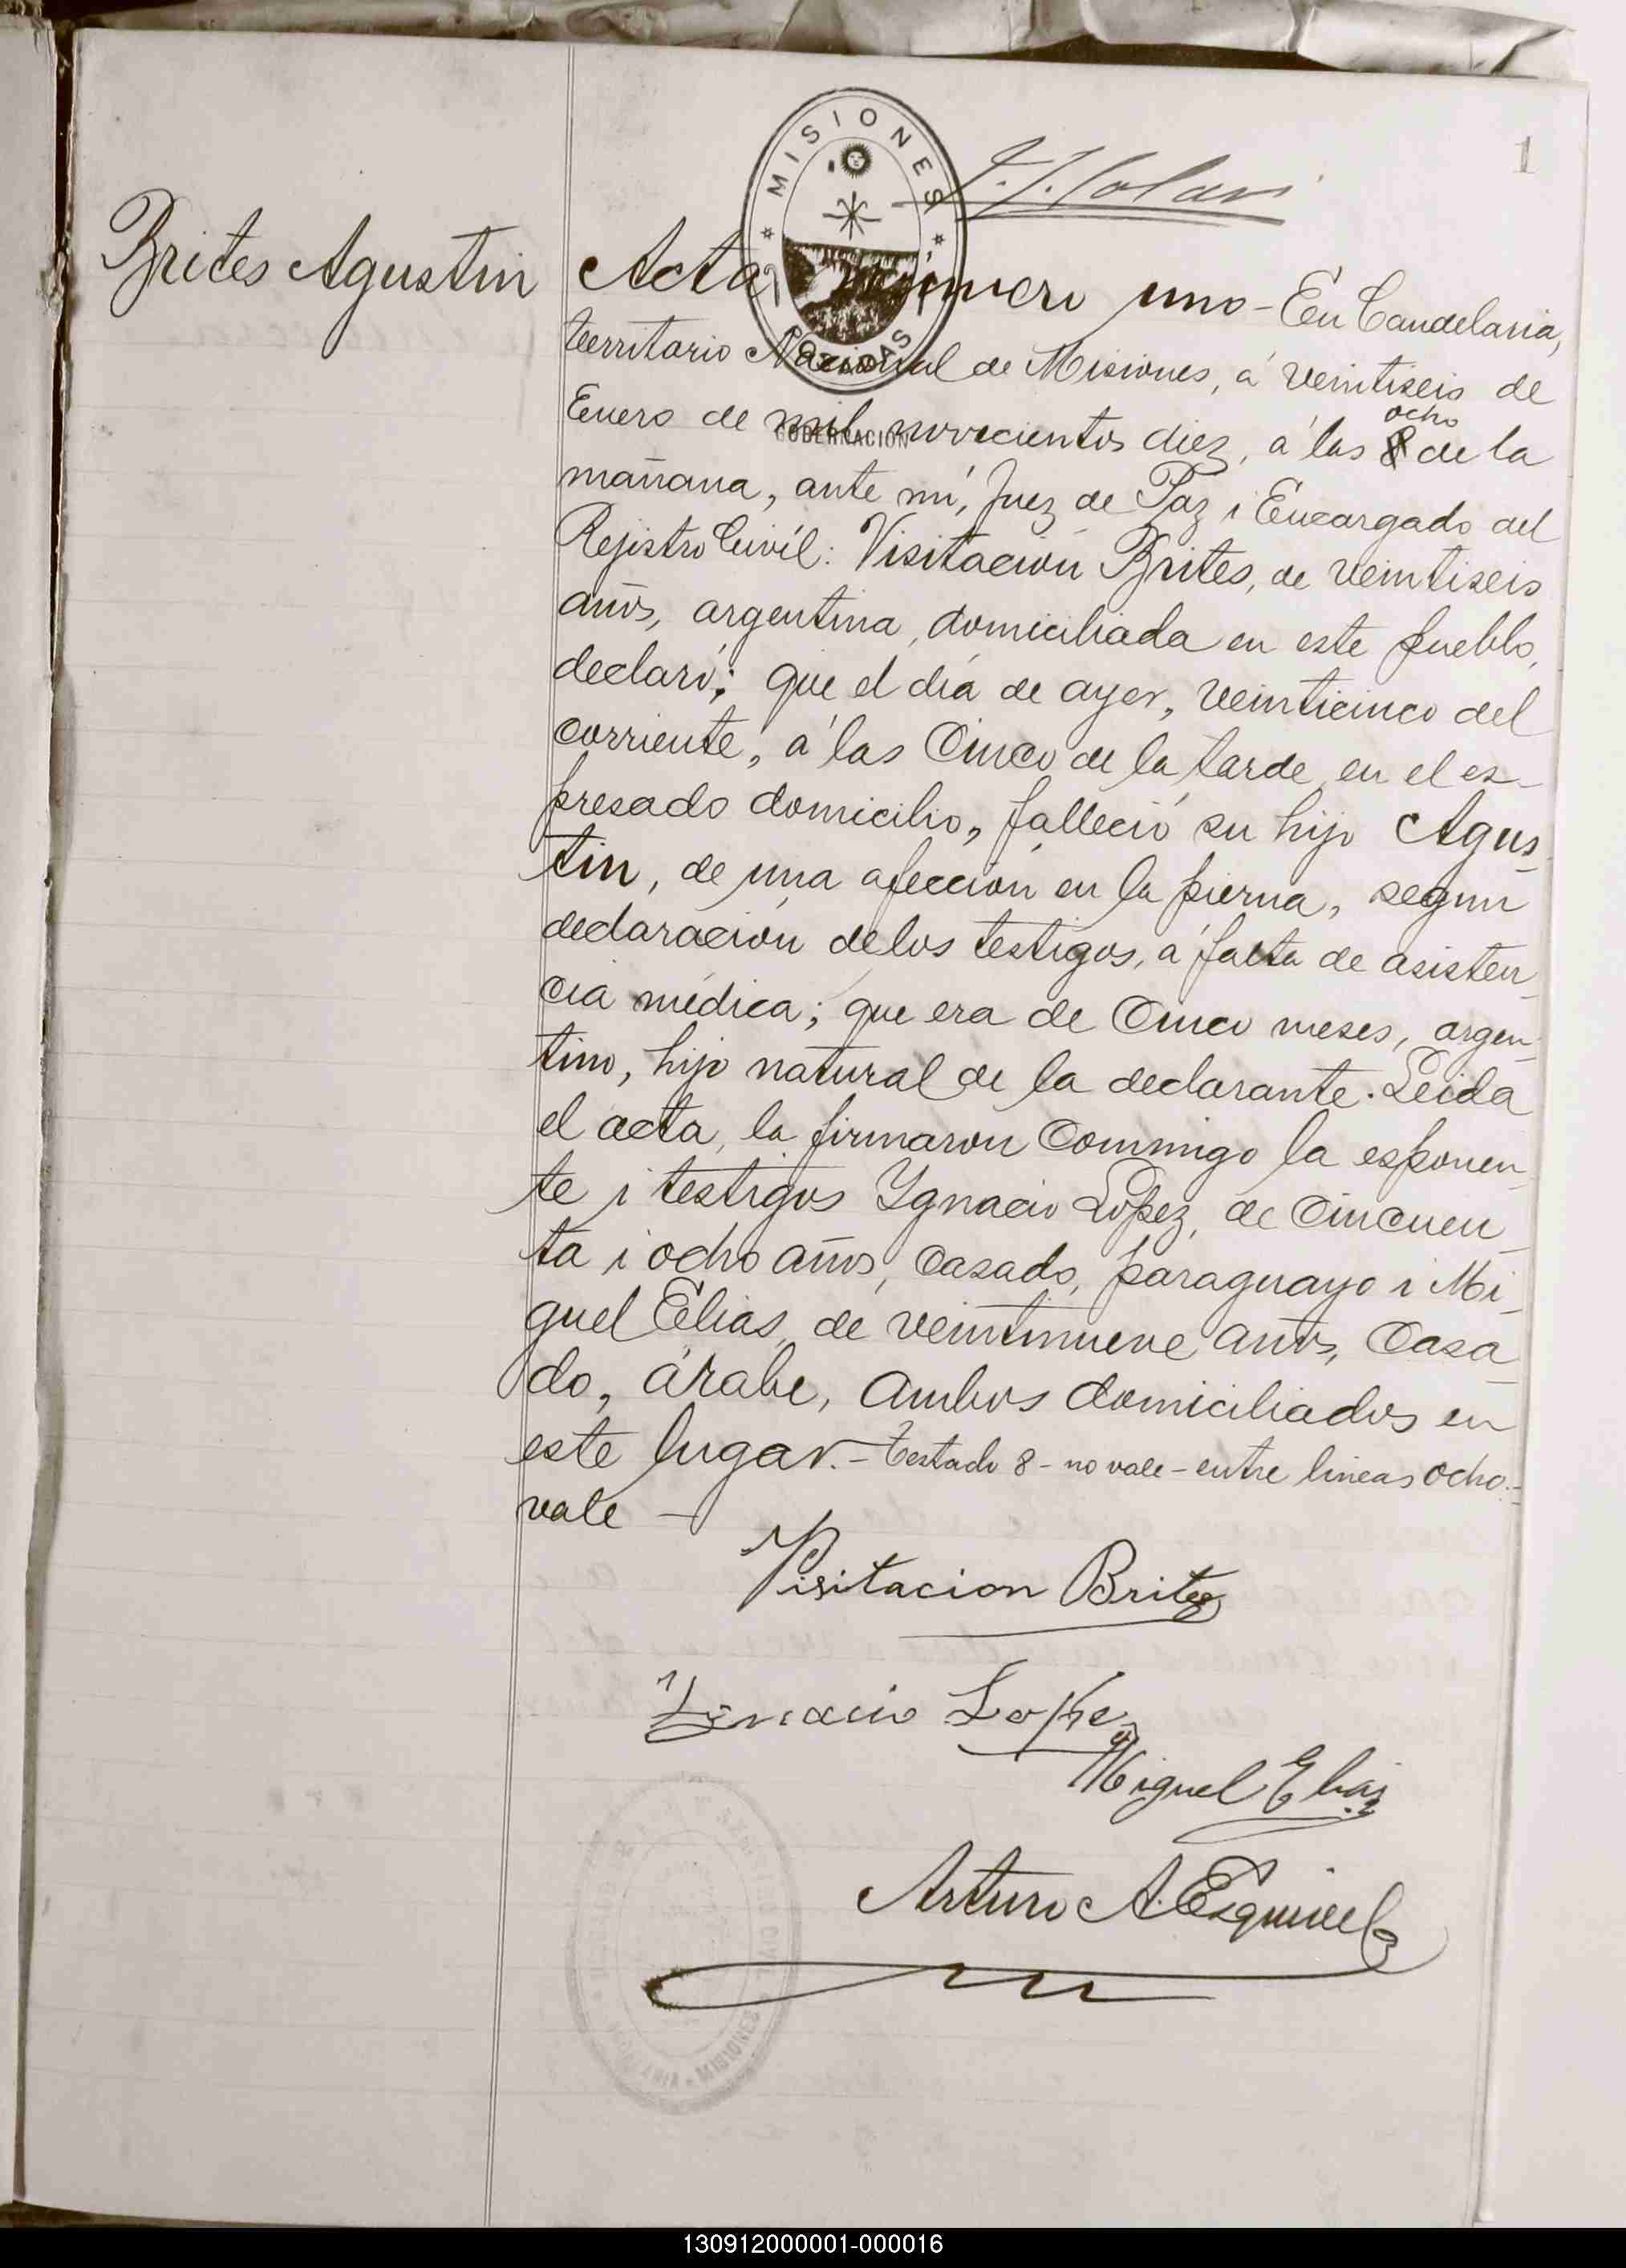 1
MISIONES
POSADAS
GOBERNACION
Brites Agustin
Acta número uno - En Candelaria,
territorio Nacional de Misiones, á veintiseis de
Enero de mil novecientos diez, á las 8 ocho de la
mañana, ante mí, Juez de Paz i Encargado del
Rejistro Civíl: Visitación Brites, de veintiseis
años, argentina, domiciliada en este pueblo,
declaró; que el día de ayer, veinticinco del
corriente, á las Cinco de la tarde, en el es-
presado domicilio, falleció su hijo Agus-
tin, de una afección en la pierna, según
declaración de los testigos, á falta de asisten-
cia médica; que era de Cinco meses, argen-
tino, hijo natural de la declarante. Leida
el acta, la firmaron Conmigo la esponen-
te i testigos Ygnacio López, de Cincuen-
ta i ocho años, Casado, paraguayo i Mi-
guel Elias, de veintinueve años, Casa-
do, árabe, Ambos domiciliados en
este lugar. - Testado 8 - no vale - entre lineas ocho -
vale -
Visitacion Brites
Ygnacio Lopez
Miguel Elias
Arturo A. Esquivel
MISIONES
130912000001-000016